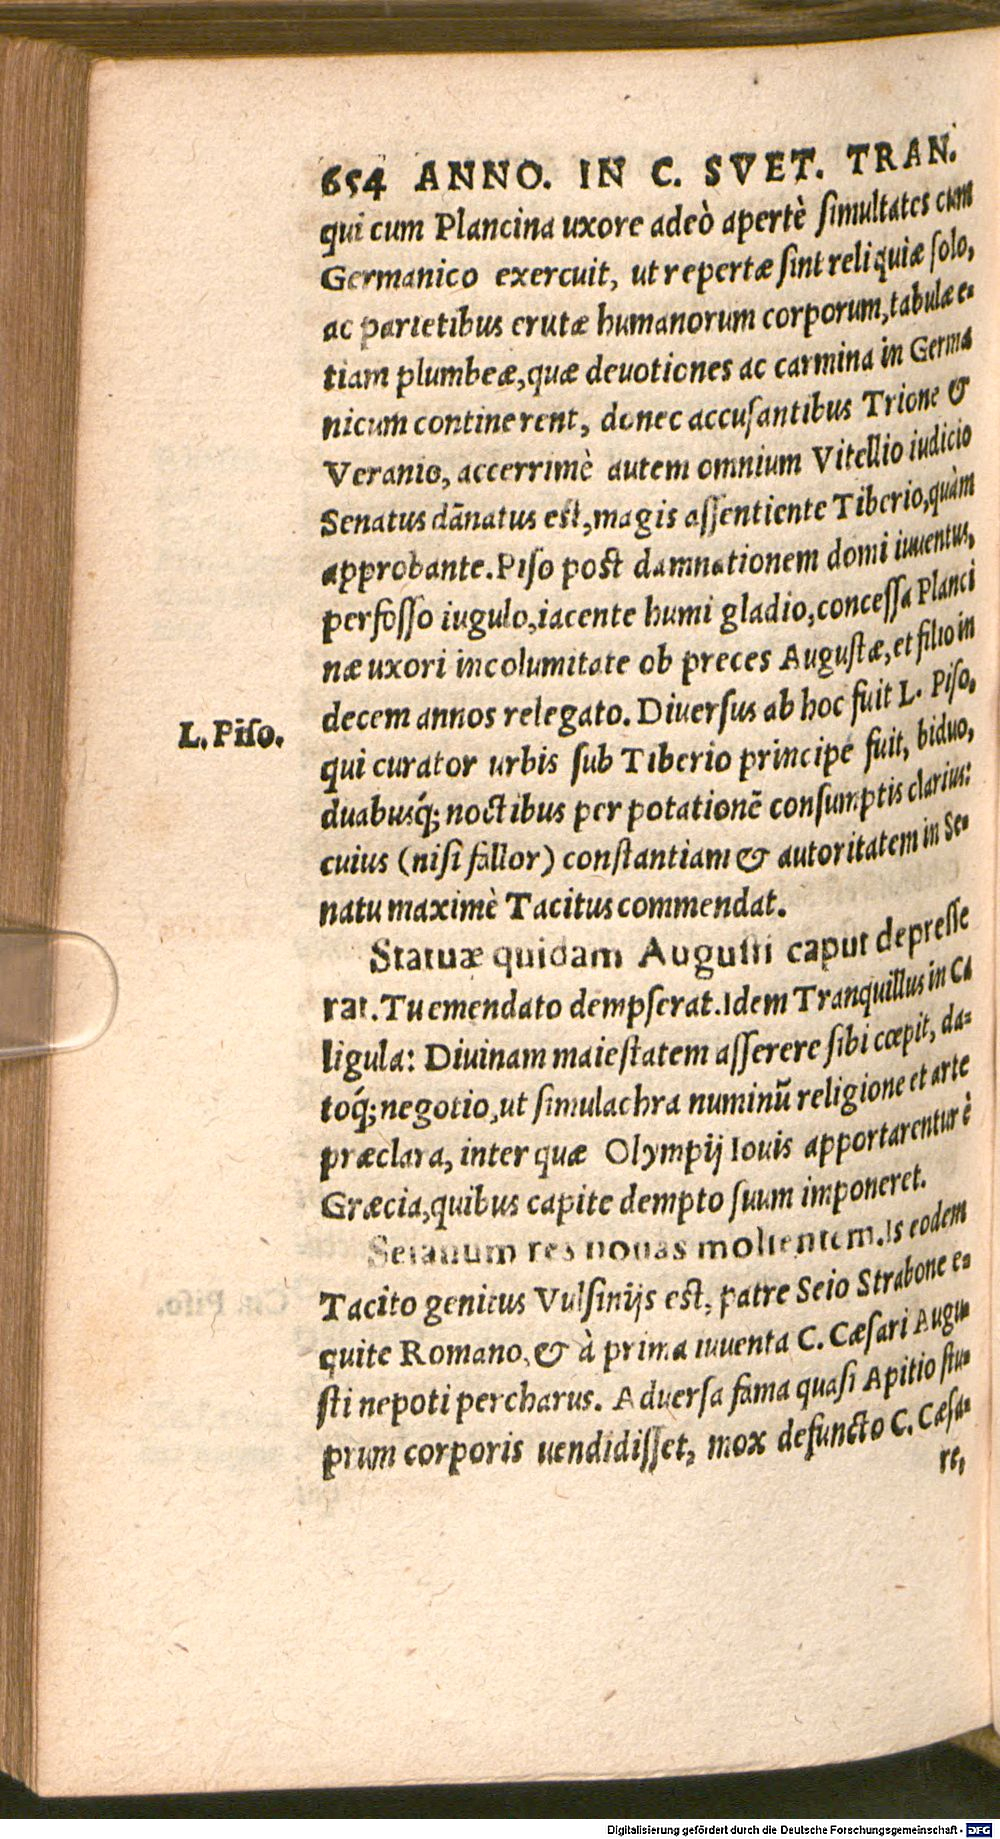 654 ANNO. IN C. SVET. TRAN.
qui cum Plancina uxore adeò apertè simultates cum
Germanico exercuit, ut repertæ sint reliquiæ solo,
ac parietibus erutæ humanorum corporum, tabulæ e-
tiam plumbeæ, quæ deuotiones ac carmina in Germa
nicum continerent, donec accusantibus Trione &
Veranio, accerrimè autem omnium Vitellio iudicio
Senatus dānatus est, magis assentiente Tiberio, quàm
approbante. Piso post damnationem domi iuuentus,
perfosso iugulo, iacente humi gladio, concessa Planci
næ uxori incolumitate ob preces Augustæ, et filio in
decem annos relegato. Diuersus ab hoc fuit L. Piso,
L. Piso.
qui curator urbis sub Tiberio principe fuit, biduo,
duabusq́; noctibus per potationē consumptis clarius:
cuius (nisi fallor) constantiam & autoritatem in Se-
natu maximè Tacitus commendat.
Statuæ quidam Augusti caput depresse
rat. Tu emendato dempserat. Idem Tranquillus in Ca
ligula: Diuinam maiestatem asserere sibi cœpit, da-
toq́; negotio, ut simulachra numinū religione et arte
præclara, inter quæ Olympij Iouis apportarentur è
Græcia, quibus capite dempto suum imponeret.
Seianum res nouas molientem. Is eodem
Tacito genitus Vulsinijs est, patre Seio Strabone e-
quite Romano, & à prima iuuenta C. Cæsari Augu-
sti nepoti percharus. Aduersa fama quasi Apitio stu-
prum corporis uendidisset, mox defuncto C. Cæsa-
re,
Digitalisierung gefördert durch die Deutsche Forschungsgemeinschaft - DFG